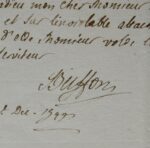 adieu mon cher Monsieur
et sur l'inviolable attach
d'être Monsieur votre
serviteur
Buffon
2 Dec. 1777